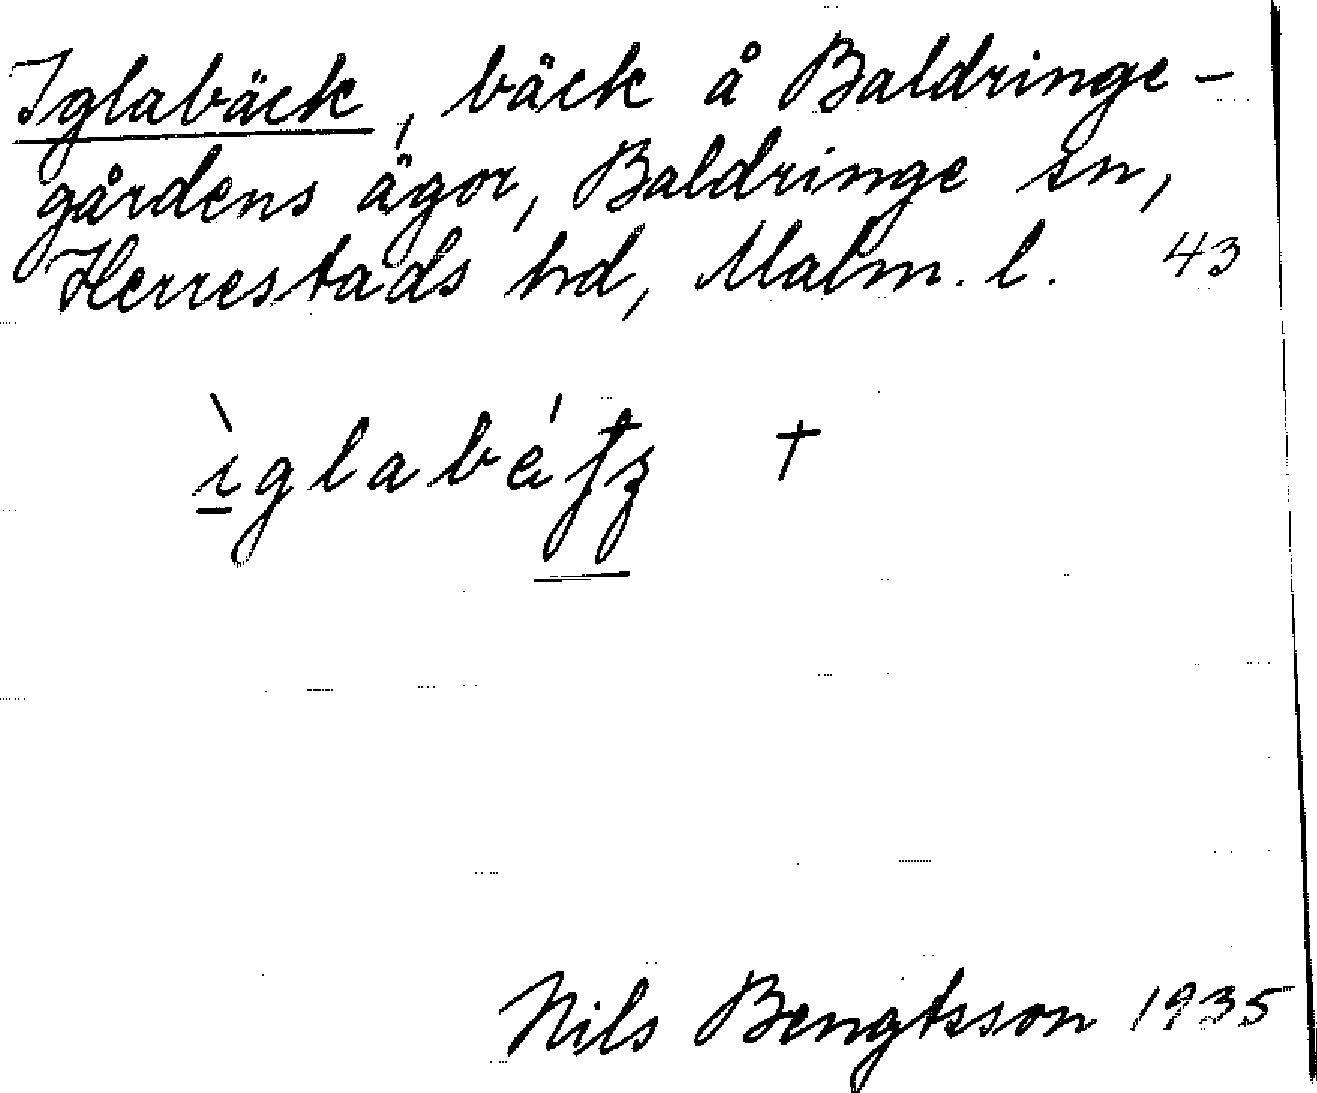 Iglabäck, bäck å Baldringe-
gårdens ägor, Baldringe sn,
Herrestads hd, Malm. l. 43
†
Nils Bengtsson 1935